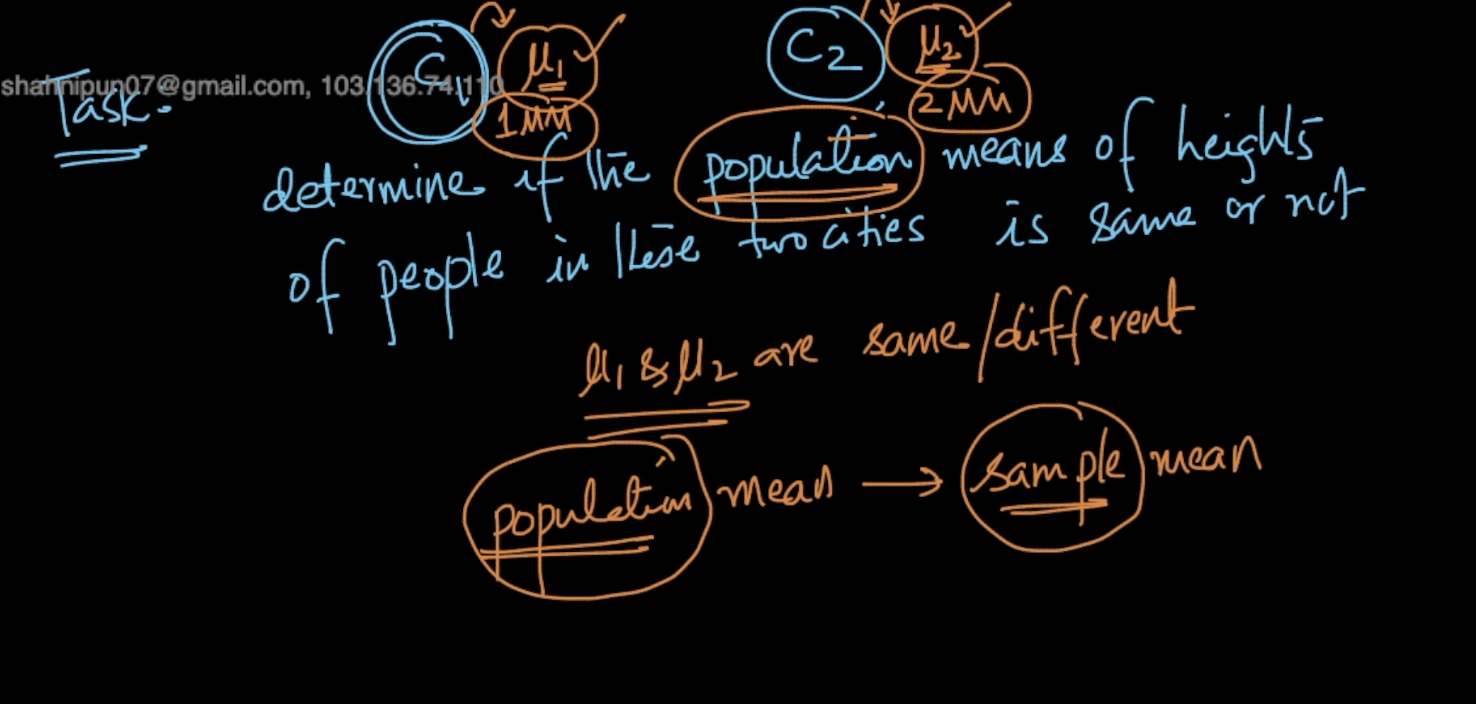 C1 μ1 C2 μ2
shahnipun07@gmail.com, 103.136.74.110
Task:
1MM 2MM
determine if the population means of heights
of people in these two cities is same or not
μ1 & μ2 are same/different
population mean → sample mean